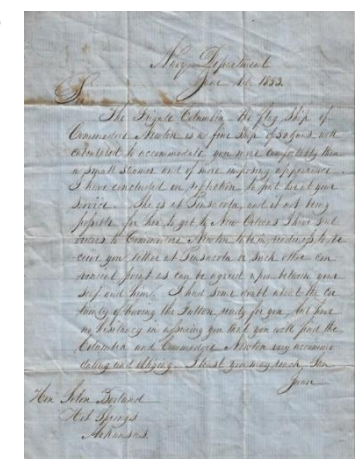 Navy Department
June 1st 1853.
Sir
The Frigate Columbia the flag Ship of
Commodore Newton is a fine Ship of 50 guns well
calculated to accommodate you more comfortably than
a small Steamer and of more imposing appearance.
I have concluded on reflection to put her at your
Service. She is at Pensacola, and it not being
possible for her to get to New Orleans I have sent
orders to Commodore Newton to be in readiness to re
ceive you either at Pensacola or such other con
venient point as can be agreed upon between your
self and him. I had some doubt about the cer
tainty of having the Fulton ready for you, but have
no hesitancy in assuring you that you will find the
Columbia and Commodore Newton very accommo
dating and obliging. I trust you may reach San
Juan
Hon Solon Borland
Hot Springs
Arkansas.